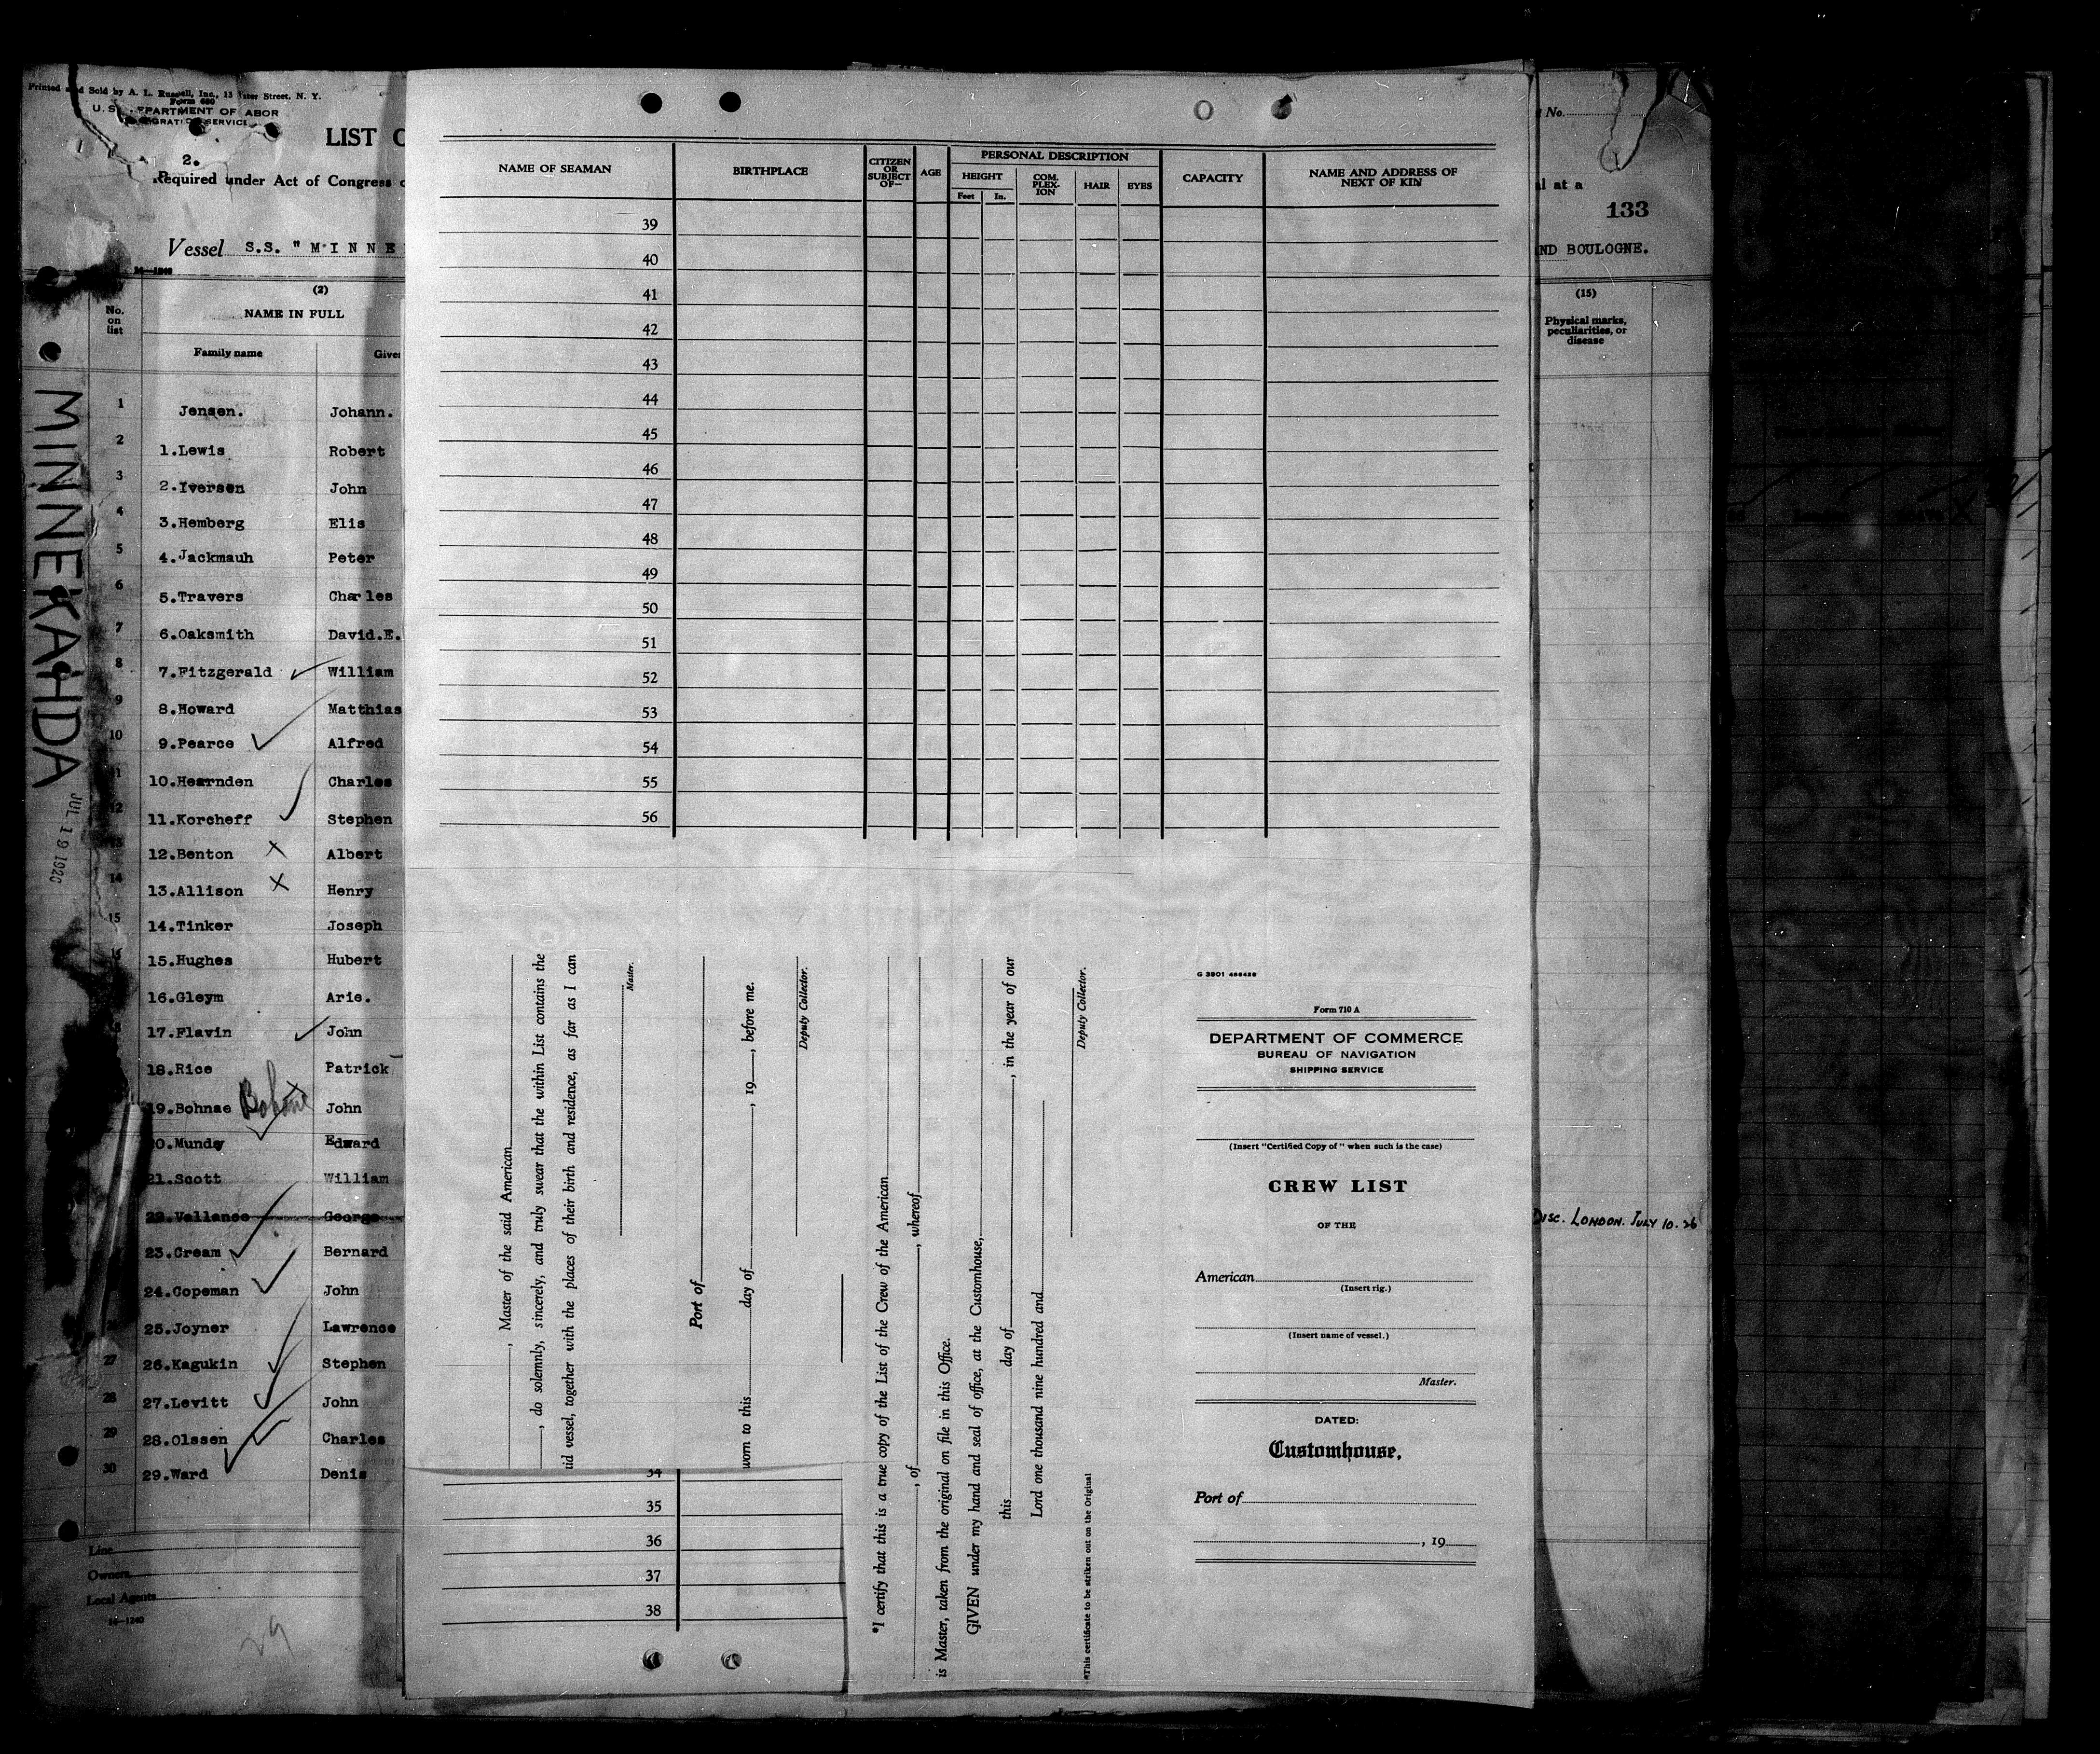 Printed and Sold by A. L. Russell, Inc., 13 Street, N. Y.
Form 680
U.S. DEPARTMENT OF ABOR
GRATI SERVICE
LIST O
2.
Required under Act of Congress o
Vessel S.S. "M I N N E
MINNEKAHDA
JUL 19 192
No. on list
(2)
NAME IN FULL
Family name Give
1 Jensen. Johann.
2 1.Lewis Robert
3 2.Iversen John
4 3.Hemberg Elis
5 4.Jackmauh Peter
6 5.Travers Charles
7 6.Oaksmith David.E.
8 7.Fitzgerald William
9 8.Howard Matthias
10 9.Pearce Alfred
11 10.Hearnden Charles
12 11.Korcheff Stephen
13 12.Benton Albert
14 13.Allison Henry
15 14.Tinker Joseph
15.Hughes Hubert
16.Gleym Arie.
17.Flavin John
18.Rice Patrick
19.Bohnae John
0.Mundy Edward
21.Scott William
22.Vallance George
23.Cream Bernard
24.Copeman John
25.Joyner Lawrence
27 26.Kagukin Stephen
28 27.Levitt John
29 28.Olssen Charles
30 29.Ward Denis
Line
Owners
Local Agents
14—1240
29
NAME OF SEAMAN
BIRTHPLACE
CITIZEN OR SUBJECT OF—
AGE
PERSONAL DESCRIPTION
HEIGHT
Feet In.
COM. PLEX- ION
HAIR
EYES
CAPACITY
NAME AND ADDRESS OF NEXT OF KIN
39
40
41
42
43
44
45
46
47
48
49
50
51
52
53
54
55
56
, Master of the said American
, do solemnly, sincerely, and truly swear that the within List contains the
id vessel, together with the places of their birth and residence, as far as I can
Master.
Port of
worn to this day of , 19 , before me.
Deputy Collector.
*I certify that this is a true copy of the List of the Crew of the American
, of , whereof
is Master, taken from the original on file in this Office.
GIVEN under my hand and seal of office, at the Customhouse,
this day of , in the year of our
Lord one thousand nine hundred and
Deputy Collector.
*This certificate to be striken out on the Original
34
35
36
37
38
Form 710 A
DEPARTMENT OF COMMERCE
BUREAU OF NAVIGATION
SHIPPING SERVICE
(Insert "Certified Copy of" when such is the case)
CREW LIST
OF THE
American
(Insert rig.)
(Insert name of vessel.)
Master.
DATED:
Customhouse,
Port of
, 19
No.
l at a
133
ND BOULOGNE.
(15)
Physical marks, peculiarities, or disease
DISC. LONDON. JULY 10. 26